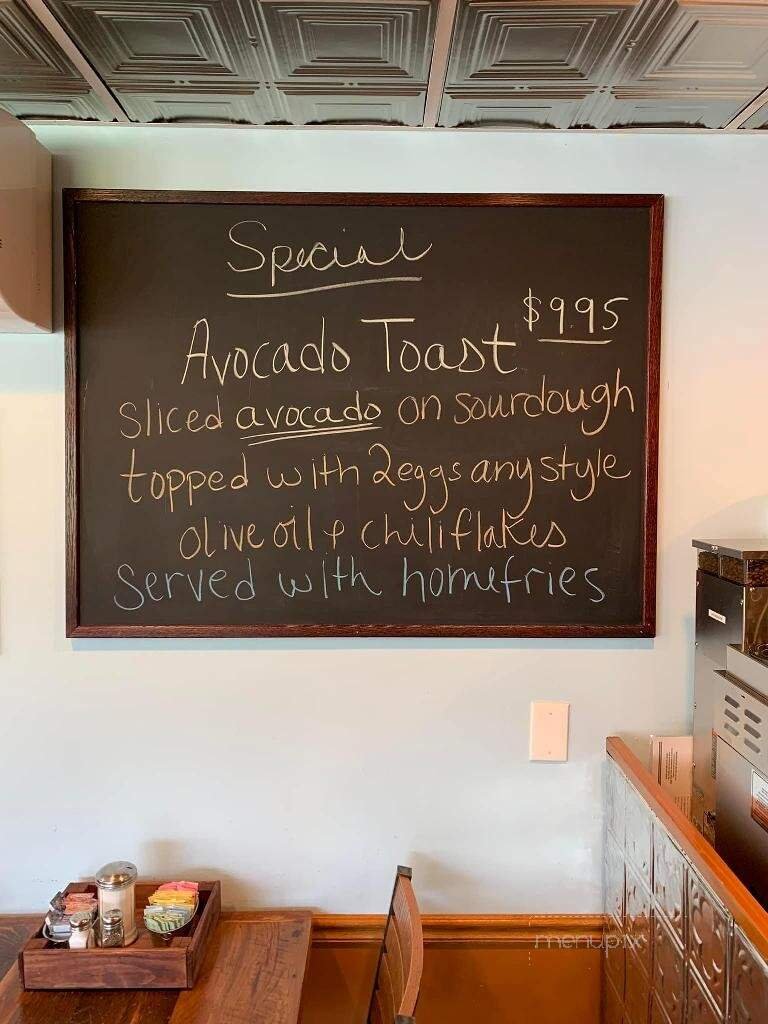 Special
$9.95
Avocado Toast
Sliced avocado on sourdough
topped with 2 eggs any style
olive oil & chili flakes
Served with homefries
menupix